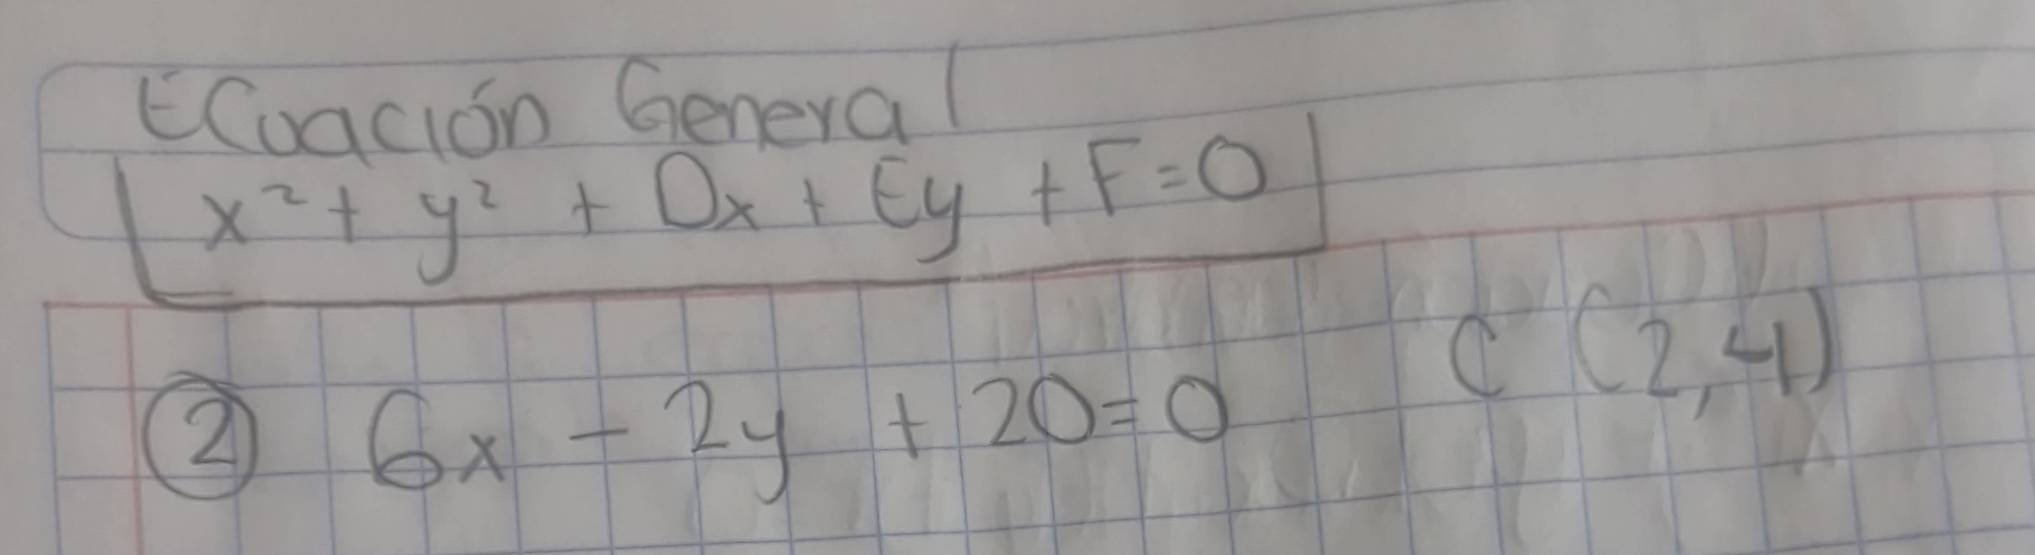 Ecuación General
x² + y² + Dx + Ey + F = 0
② 6x - 2y + 20 = 0 C (2, 4)